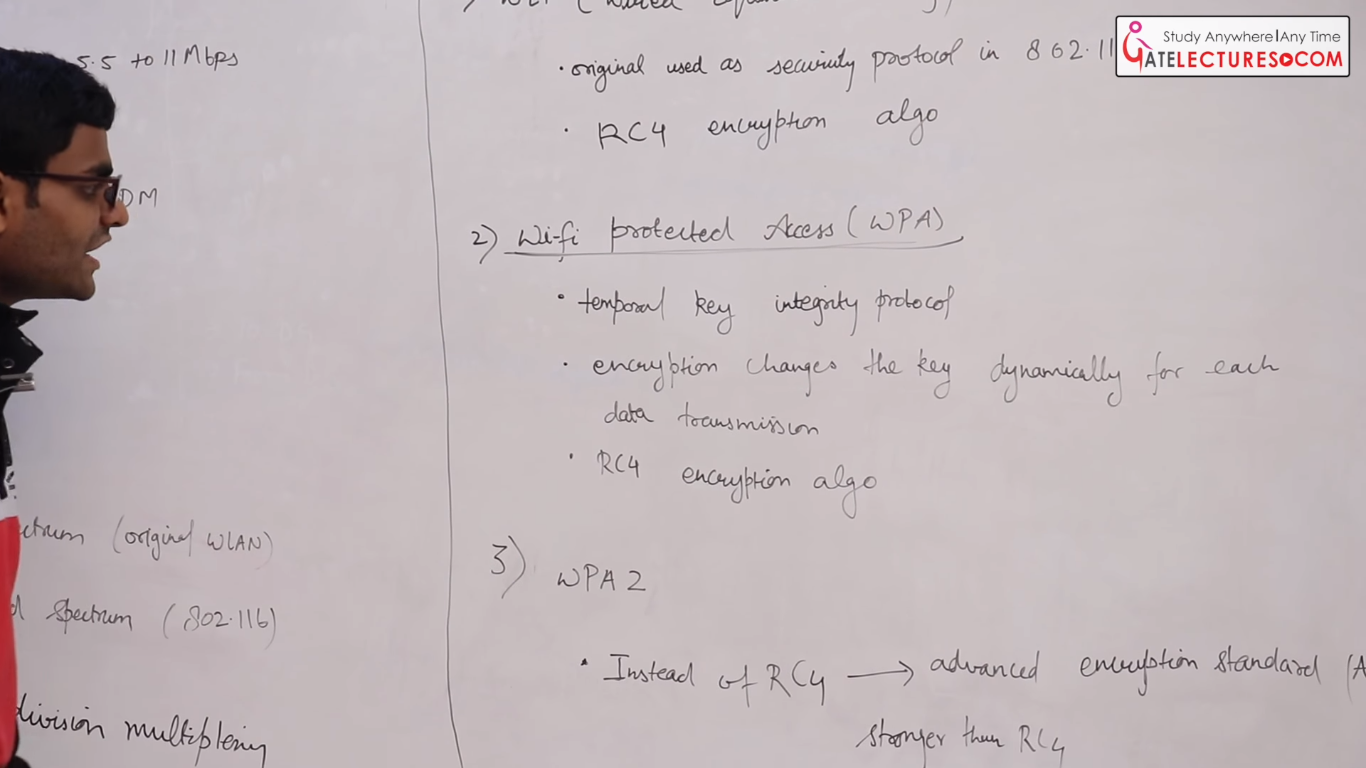 5.5 to 11 Mbps
DM
(original WLAN)
spectrum (802.11b)
division multiplexing
• original used as security protocol in 802.11
• RC4 encryption algo
2) Wi-fi protected Access (WPA)
• temporal key integrity protocol
• encryption changes the key dynamically for each
data transmission
• RC4 encryption algo
3) WPA 2
• Instead of RC4 → advanced encryption standard (A
stronger than RC4
Study Anywhere|Any Time
GATELECTURES.COM